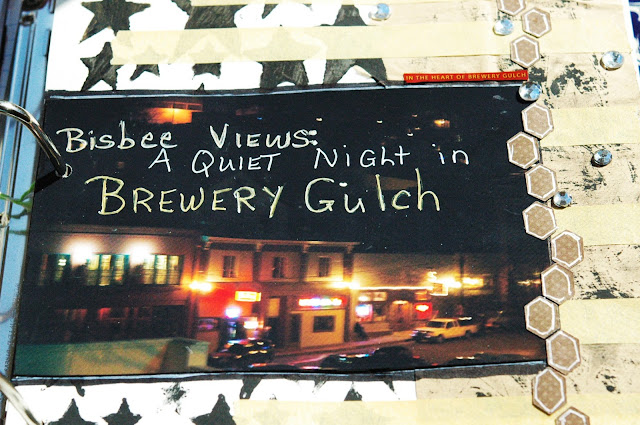 IN THE HEART OF BREWERY GULCH
Bisbee Views:
A Quiet Night in
Brewery Gulch